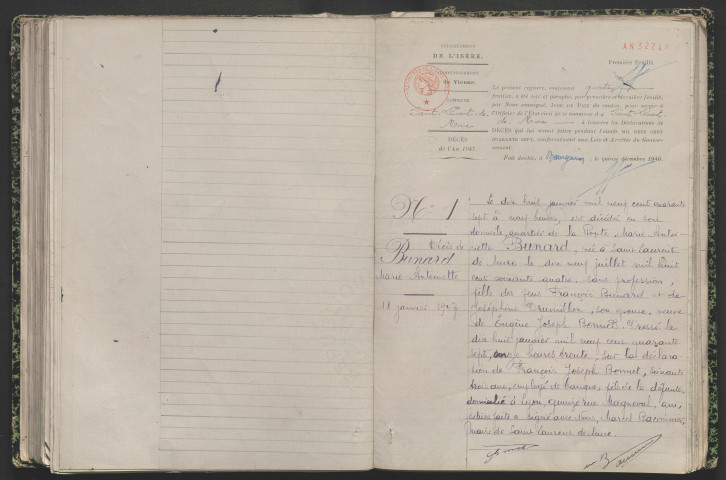 AN 3224
DÉPARTEMENT
DE L'ISÈRE.
ARRONDISSEMENT
de Vienne.
COMMUNE
Saint Laurent de
Mure
DÉCÈS
de l'An 1947.
Première feuille.
Le présent registre, contenant
feuillets, a été coté et paraphé, par première et dernière feuille,
par Nous soussigné, Juge de Paix du canton, pour servir à
l'Officier de l'État civil de la commune d Saint Laurent
de Mure à inscrire les Déclarations de
DÉCÈS qui lui seront faites pendant l'année MIL NEUF CENT
QUARANTE-SEPT, conformément aux Lois et Arrêtés du Gouver-
nement.
Fait double, à Bourgoin, le quinze décembre 1946.
N° 1
Décès de
Bunard
Marie Antoinette
18 janvier 1947
Le dix huit janvier mil neuf cent quarante
sept à neuf heures, est décédée en son
domicile, quartier de la Poste, Marie Antoi-
nette Bunard, née à Saint Laurent
de Mure le dix neuf juillet mil huit
cent soixante quatre, sans profession,
fille des feus François Bunard et de
Joséphine Drumillon, son épouse, veuve
de Eugène Joseph Bonnet. Dressé le
dix huit janvier mil neuf cent quarante
sept, onze heures trente, sur la déclara
tion de François Joseph Bonnet, soixante
trois ans, employé de banque, fils de la défunte,
domicilié à Lyon, quinze rue Magneval, qui,
lecture faite a signé avec Nous, Marcel
Maire de Saint Laurent de Mure.